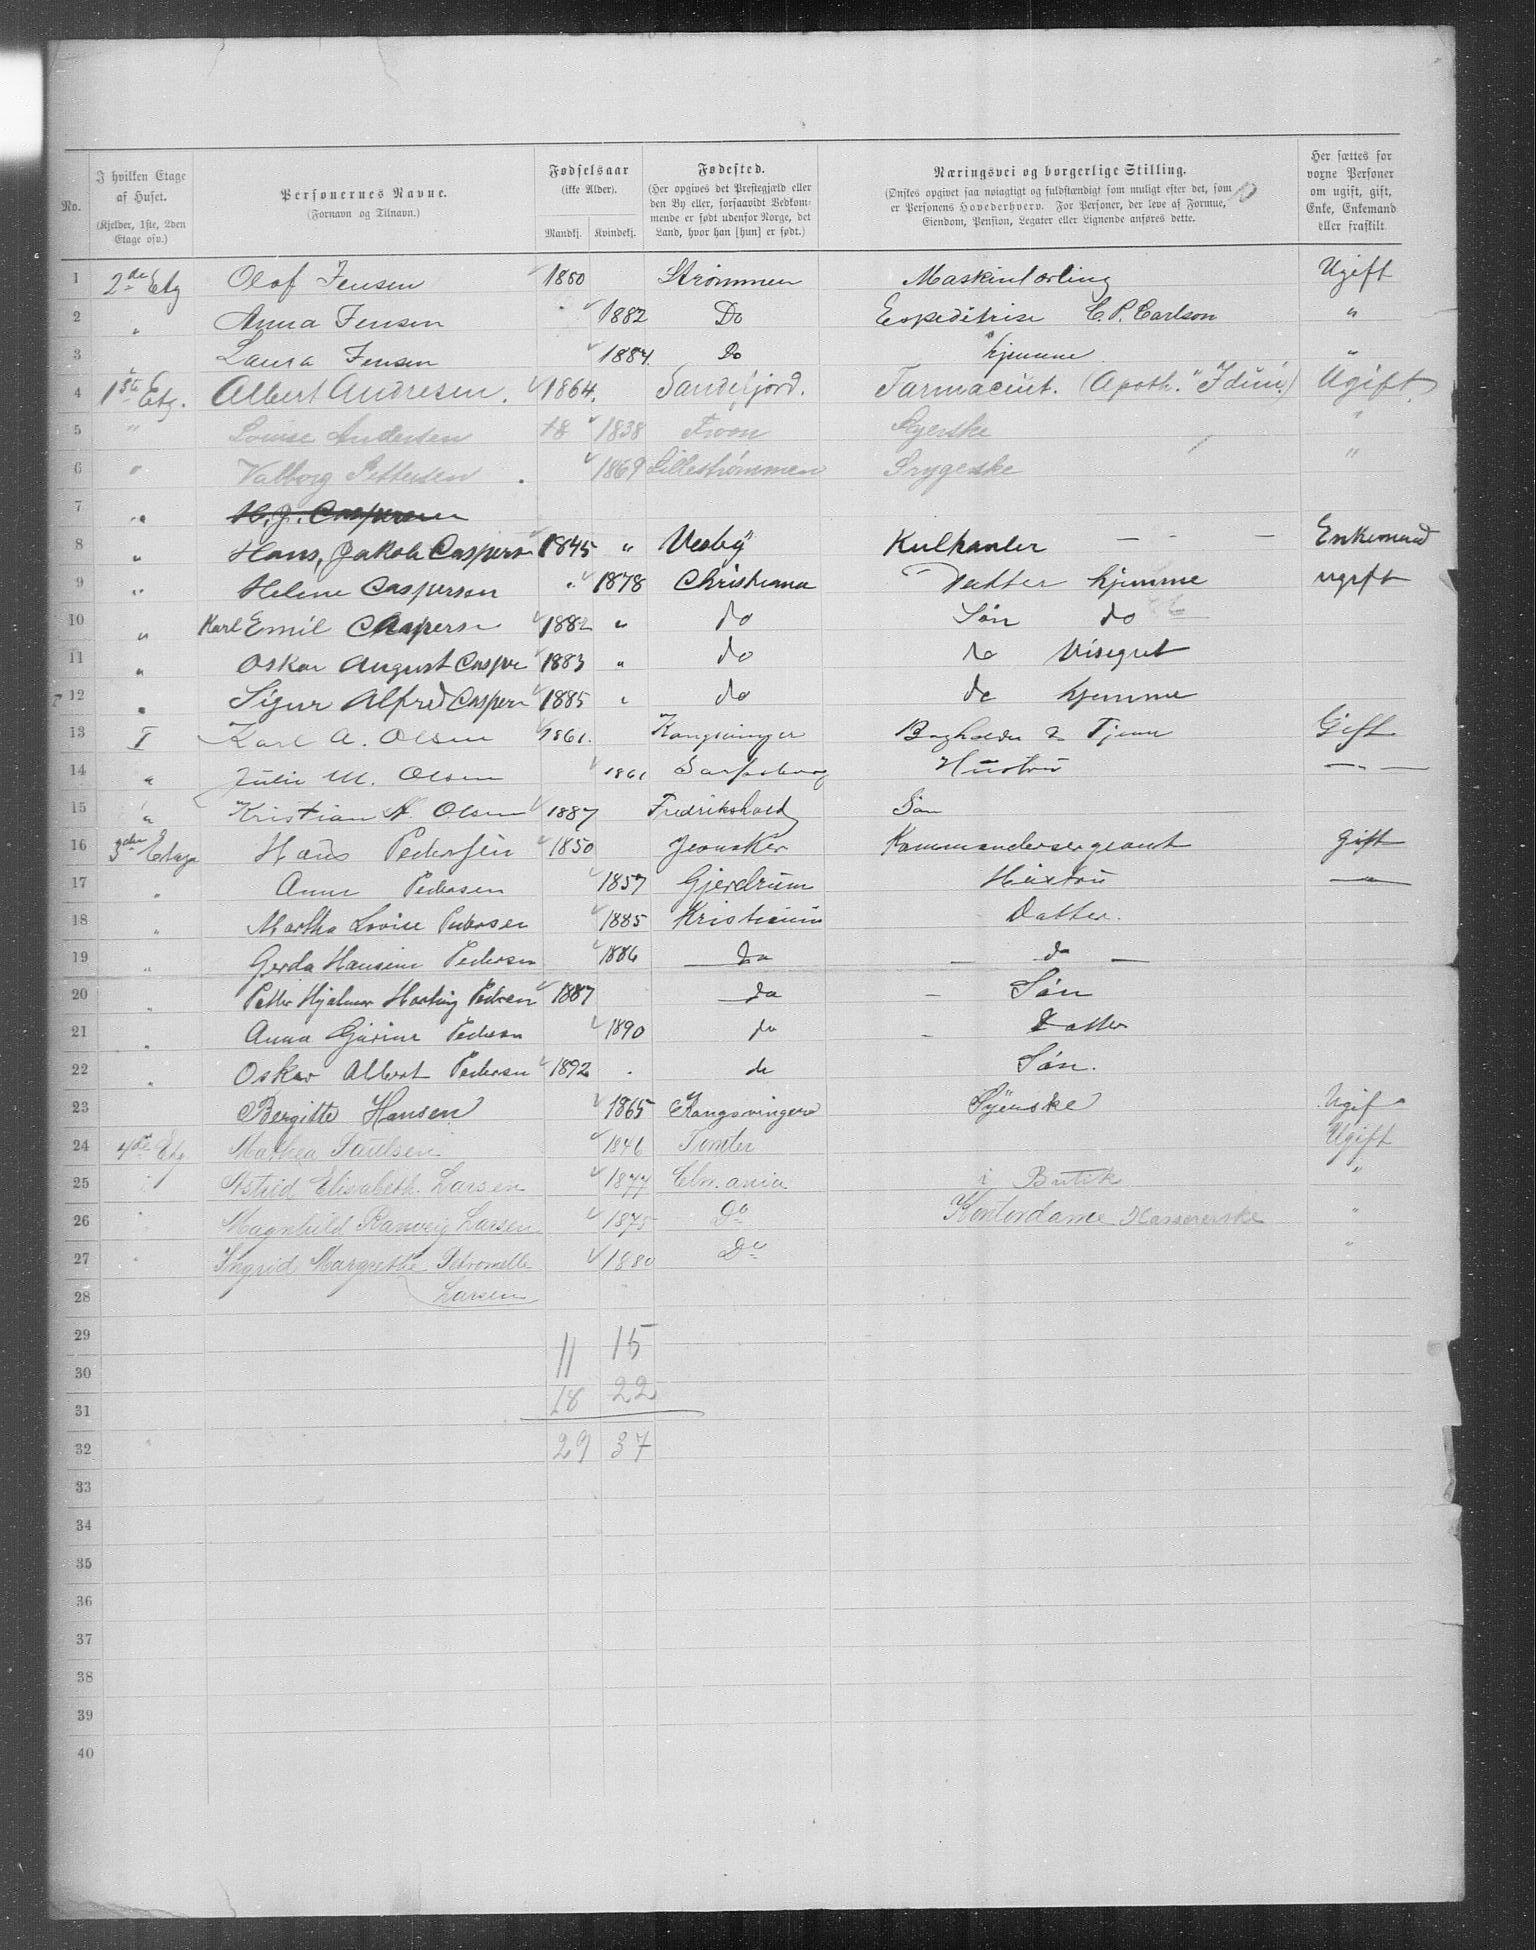 No.
I hvilken Etage af Huset.
(Kjelder, 1ste, 2den Etage osv.)
Personernes Navne.
(Fornavn og Tilnavn.)
Fødselsaar
(ikke Alder).
Mandkj. Kvindekj.
Fødested.
(Her opgives det Prestegjæld eller den By eller, forsaavidt Vedkommende er født udenfor Norge, det Land, hvor han [hun] er født.)
Næringsvei og borgerlige Stilling.
(Ønskes opgivet saa nøiagtigt og fuldstændigt som muligt efter det, som er Personens Hovederhverv. For Personer, der leve af Formue, Eiendom, Pension, Legater eller Lignende anføres dette.
Her sættes for voxne Personer om ugift, gift, Enke, Enkemand eller fraskilt.
1 2de Etg Olaf Jensen 1880 Strømmen Maskinlærling Ugift
2 " Anna Jensen 1882 Do Expeditrise C. P. Carlson "
3 Laura Jensen 1884. Do hjemme "
4 1ste Etg. Albert Andresen. 1864. Sandefjord. Farmaceut. (Apoth. "Idun") Ugift
5 " Louise Andersen 18 1838 Syerske "
6 " Valborg Pettersen 1869 Lillestrømmen Strygerske "
7 " H. J. Caspersen
8 " Hans, Jakob Caspers 1845 " Vesby Kulhanler - - - Enkemand
9 " Helene Casperson " 1878 Christiania Datter hjemme ugift
10 " Karl Emil Caspers 1882 " do Søn do
11 " Oskar August Casper 1883 " do do Visegut
12 " Sigur Alfred Caspern 1885 " do do hjemme
13 I Karl A. Olsen 1861. Kongsvinger Bogholder & Gift
14 " Julie M. Olsen 1861 Sarpsborg Hustru — " —
15 " Kristian N. Olsen 1887 Fredrikshald Søn
16 3die Etage Hans Pedersen 1850 Kommandersergeant gift
17 " Anne Pedersen 1857 Gjerdrum Hustru — " —
18 " Martha Lovise Pedersen 1885 Kristiania Datter.
19 " Gerda Hansine Pedersen 1886 — do — do —
20 " Petter Hjalmar Pedersen 1887 — do - Søn
21 " Anna Pedersen 1890 do - Datter
22 " Oskar Albert Pedersen 1892 . do Søn.
23 Bergitte Hansen 1865 Kongsvinger Syerske Ugift
24 4de Etg Mathea Paulsen 1846 Tomter Ugift
25 Astrid Elisabeth Larsen 1877 Chr.ania i Butik "
26 " Magnhild Ranveig Larsen 1875 Do Kontordame Kassererske "
27 " Ingrid Margrethe Petronelle 1880 Do "
28 Larsen
29 11 15
30
31 18 22
32 29 37
33
34
35
36
37
38
39
40